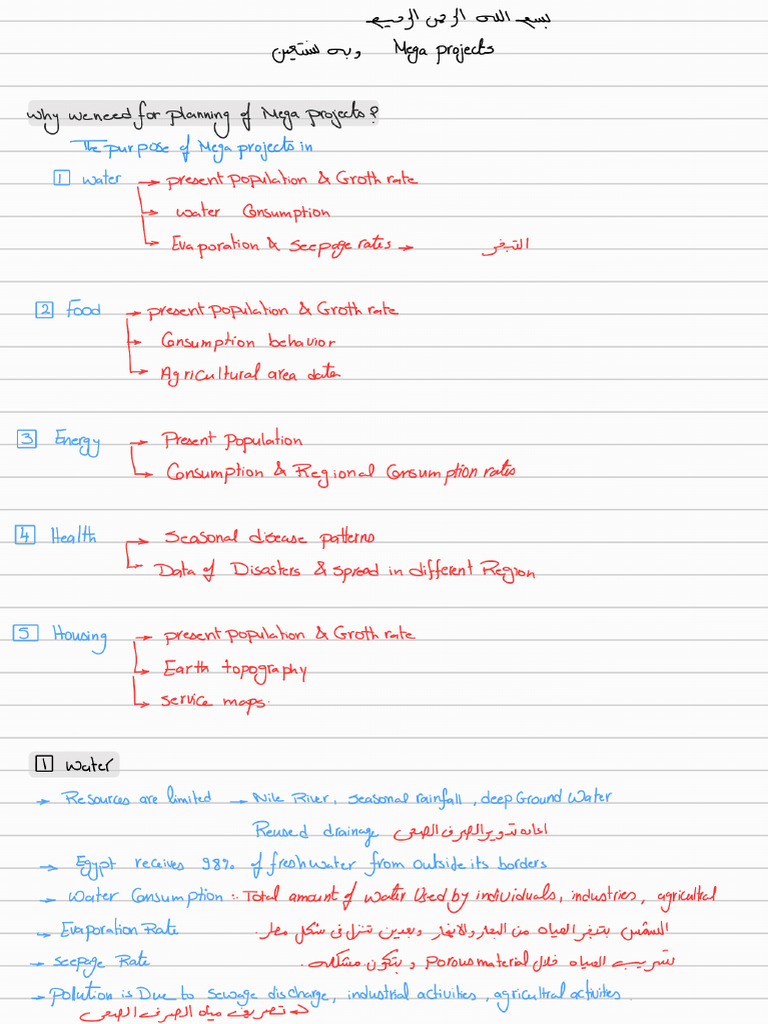 بسم الله الرحمن الرحيم
وبه نستعين Mega projects
Why we need for planning of Mega projects?
The purpose of Mega projects in
1 water → present population & Groth rate
→ water Consumption
→ Evaporation & seepage rates → التبخر
2 Food → present population & Groth rate
→ Consumption behavior
→ Agricultural area data
3 Energy → Present Population
→ Consumption & Regional Consumption rates
4 Health → Seasonal disease patterns
→ Data of Disasters & spread in different Region
5 Housing → present population & Groth rate
→ Earth topography
→ service maps.
1 water
→ Resources are limited → Nile River, seasonal rainfall, deep Ground Water
Reused drainage اعادة تدوير الصرف الصحي
→ Egypt receives 98% of fresh water from outside its borders
→ Water Consumption :- Total amount of water Used by individuals, industries, agricultral
→ Evaporation Rate الشمس بتبخر المياه من البحار والانهار وبعدين تنزل في شكل مطر.
→ seepage Rate تسريب المياه خلال porous material و بتكون مشكله.
→ Polution is Due to sewage discharge, industrial activities, agricultral activites.
→ تصريف مياه الصرف الصحي